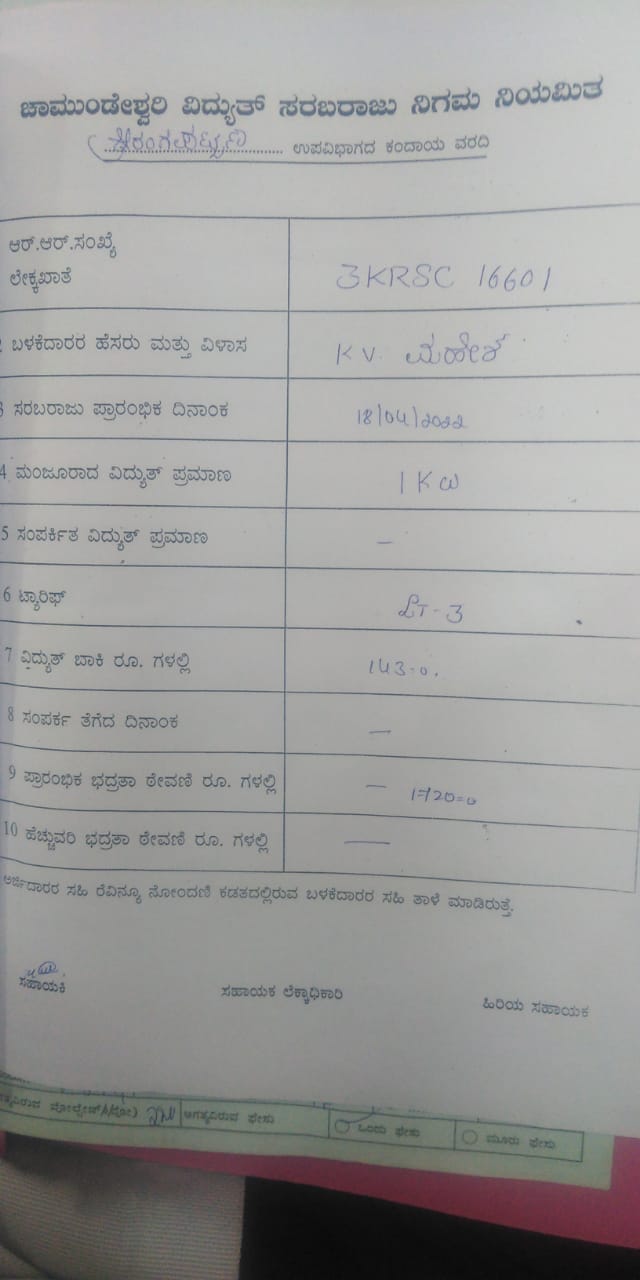 ಚಾಮುಂಡೇಶ್ವರಿ ವಿದ್ಯುತ್ ಸರಬರಾಜು ನಿಗಮ ನಿಯಮಿತ
ಶ್ರೀರಂಗಪಟ್ಟಣ ಉಪವಿಭಾಗದ ಕಂದಾಯ ವರದಿ
ಆರ್.ಆರ್.ಸಂಖ್ಯೆ
ಲೇಕ್ಕಖಾತೆ 3KRSC 16601
2 ಬಳಕೆದಾರರ ಹೆಸರು ಮತ್ತು ವಿಳಾಸ K V. ಮಹೇಶ
3 ಸರಬರಾಜು ಪ್ರಾರಂಭಿಕ ದಿನಾಂಕ 18/04/2022
4 ಮಂಜೂರಾದ ವಿದ್ಯುತ್ ಪ್ರಮಾಣ 1 KW
5 ಸಂಪರ್ಕಿತ ವಿದ್ಯುತ್ ಪ್ರಮಾಣ –
6 ಟ್ಯಾರಿಫ್ LT-3
7 ವಿದ್ಯುತ್ ಬಾಕಿ ರೂ. ಗಳಲ್ಲಿ 143-0.
8 ಸಂಪರ್ಕ ತೆಗೆದ ದಿನಾಂಕ –
9 ಪ್ರಾರಂಭಿಕ ಭದ್ರತಾ ಠೇವಣಿ ರೂ. ಗಳಲ್ಲಿ – 1720=0
10 ಹೆಚ್ಚುವರಿ ಭದ್ರತಾ ಠೇವಣಿ ರೂ. ಗಳಲ್ಲಿ —
ಅರ್ಜಿದಾರರ ಸಹಿ ರೆವಿನ್ಯೂ ನೋಂದಣಿ ಕಡತದಲ್ಲಿರುವ ಬಳಕೆದಾರರ ಸಹಿ ತಾಳೆ ಮಾಡಿರುತ್ತೆ.
ಸಹಾಯಕಿ ಸಹಾಯಕ ಲೆಕ್ಕಾಧಿಕಾರಿ ಹಿರಿಯ ಸಹಾಯಕ
ಅಗತ್ಯವಿರುವ ಫೇಸು ಒಂದು ಫೇಸು ಮೂರು ಫೇಸು